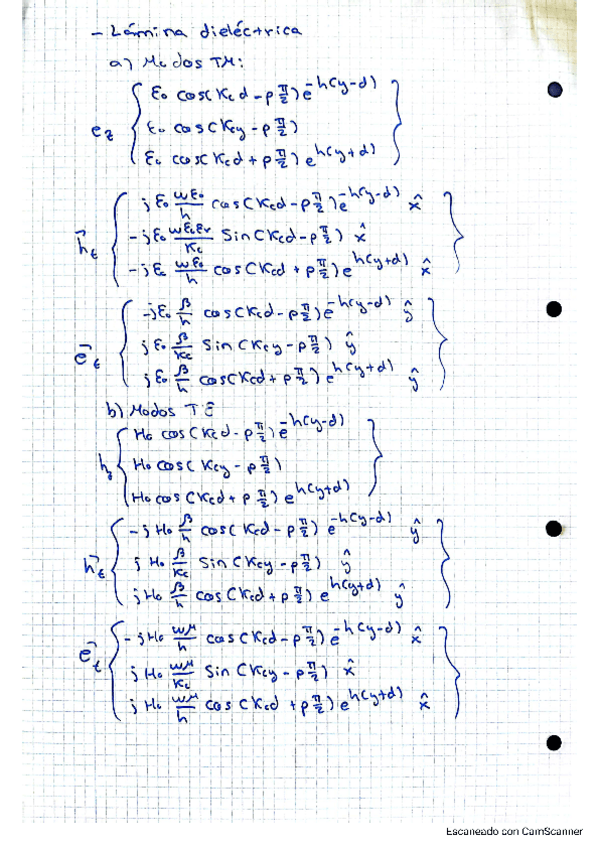 - Lámina dieléctrica
a) Modos TM:
e_z { E₀ cos(K_c d - p π/2) e^{-h(y-d)}
E₀ cos(K_c y - p π/2)
E₀ cos(K_c d + p π/2) e^{h(y+d)} }
h⃗_t { j E₀ ωε₀/h cos(K_c d - p π/2) e^{-h(y-d)} x̂
- j E₀ ωε₀ε_r/K_c sin(K_c d - p π/2) x̂
- j E₀ ωε₀/h cos(K_c d + p π/2) e^{h(y+d)} x̂ }
e⃗_t { - j E₀ β/h cos(K_c d - p π/2) e^{-h(y-d)} ŷ
j E₀ β/K_c sin(K_c y - p π/2) ŷ
j E₀ β/h cos(K_c d + p π/2) e^{h(y+d)} ŷ }
b) Modos TE
h_z { H₀ cos(K_c d - p π/2) e^{-h(y-d)}
H₀ cos(K_c y - p π/2)
H₀ cos(K_c d + p π/2) e^{h(y+d)} }
h⃗_t { - j H₀ β/h cos(K_c d - p π/2) e^{-h(y-d)} ŷ
j H₀ β/K_c sin(K_c y - p π/2) ŷ
j H₀ β/h cos(K_c d + p π/2) e^{h(y+d)} ŷ }
e⃗_t { - j H₀ ωμ/h cos(K_c d - p π/2) e^{-h(y-d)} x̂
j H₀ ωμ/K_c sin(K_c y - p π/2) x̂
j H₀ ωμ/h cos(K_c d + p π/2) e^{h(y+d)} x̂ }
Escaneado con CamScanner